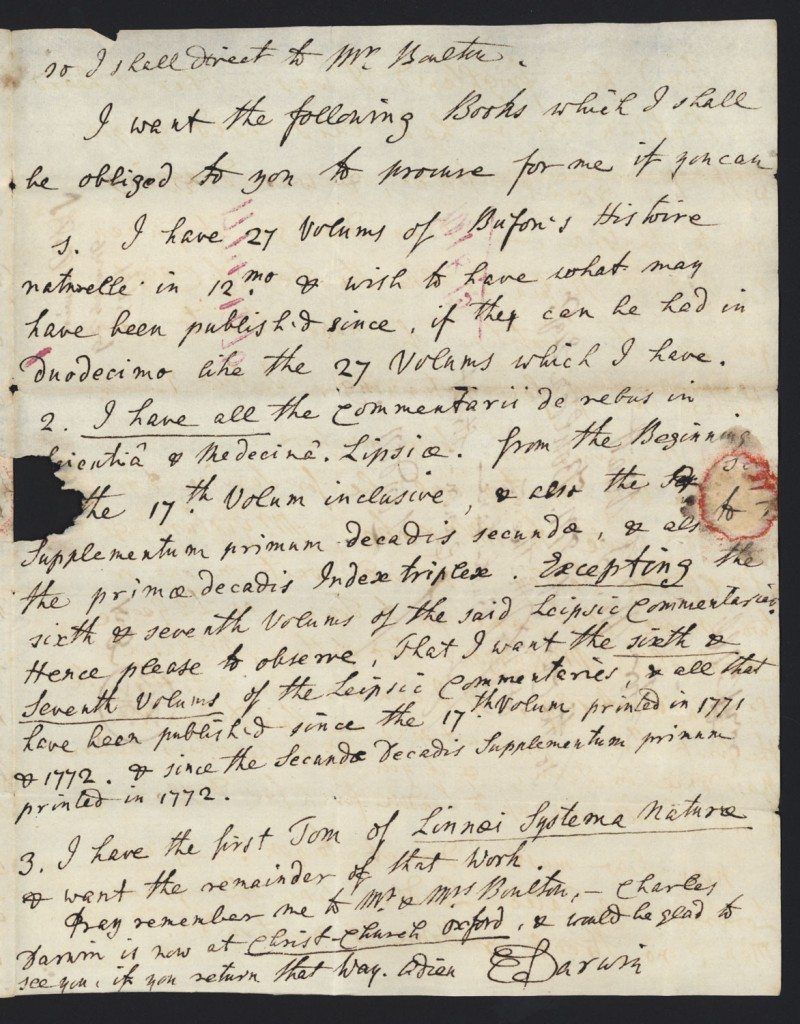 so I shall direct to Mr. Boulton.
I want the following Books which I shall
be obliged to you to procure for me if you can
1. I have 27 Volums of Bufon's Histoire
naturelle in 12.mo & wish to have what may
have been publish'd since, if they can be had in
Duodecimo like the 27 Volums which I have.
2. I have all the Commentarii de rebus in
scientiâ & Medecinâ. Lipsiæ. from the Beginning
to
the 17.th Volum inclusive, & also the
Supplementum primum decadis secundæ, & also
the primæ decadis Index triplex. Excepting the
sixth & seventh Volums of the said Leipsic Commentaries.
Hence please to observe, That I want the sixth &
Seventh Volums of the Leipsic Commentaries, & all that
have been publish'd since the 17.th Volum printed in 1771
& 1772. & since the Secundæ Decadis Supplementum primum
printed in 1772.
3. I have the first Tom of Linnæi Systema Naturæ
& want the remainder of that Work.
Pray remember me to Mr. & Mrs Boulton, – Charles
Darwin is now at Christ-Church Oxford, & would be glad to
see you, if you return that Way. Adieu EDarwin